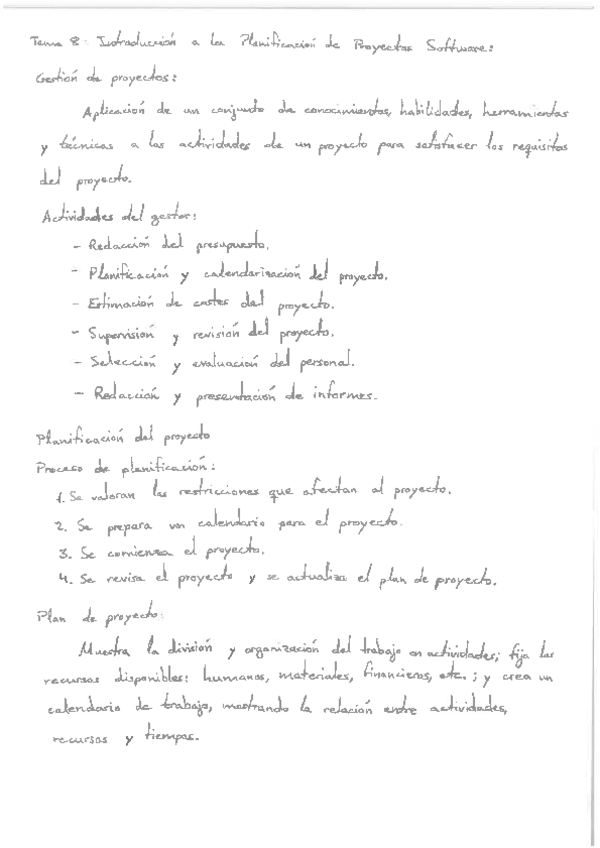 Tema 8: Introducción a la Planificación de Proyectos Software:
Gestión de proyectos:
Aplicación de un conjunto de conocimientos, habilidades, herramientas
y técnicas a las actividades de un proyecto para satisfacer los requisitos
del proyecto.
Actividades del gestor:
- Redacción del presupuesto.
- Planificación y calendarización del proyecto.
- Estimación de costes del proyecto.
- Supervisión y revisión del proyecto.
- Selección y evaluación del personal.
- Redacción y presentación de informes.
Planificación del proyecto
Proceso de planificación:
1. Se valoran las restricciones que afectan al proyecto.
2. Se prepara un calendario para el proyecto.
3. Se comienza el proyecto.
4. Se revisa el proyecto y se actualiza el plan de proyecto.
Plan de proyecto:
Muestra la división y organización del trabajo en actividades; fija los
recursos disponibles: humanos, materiales, financieros, etc.; y crea un
calendario de trabajo, mostrando la relación entre actividades,
recursos y tiempos.